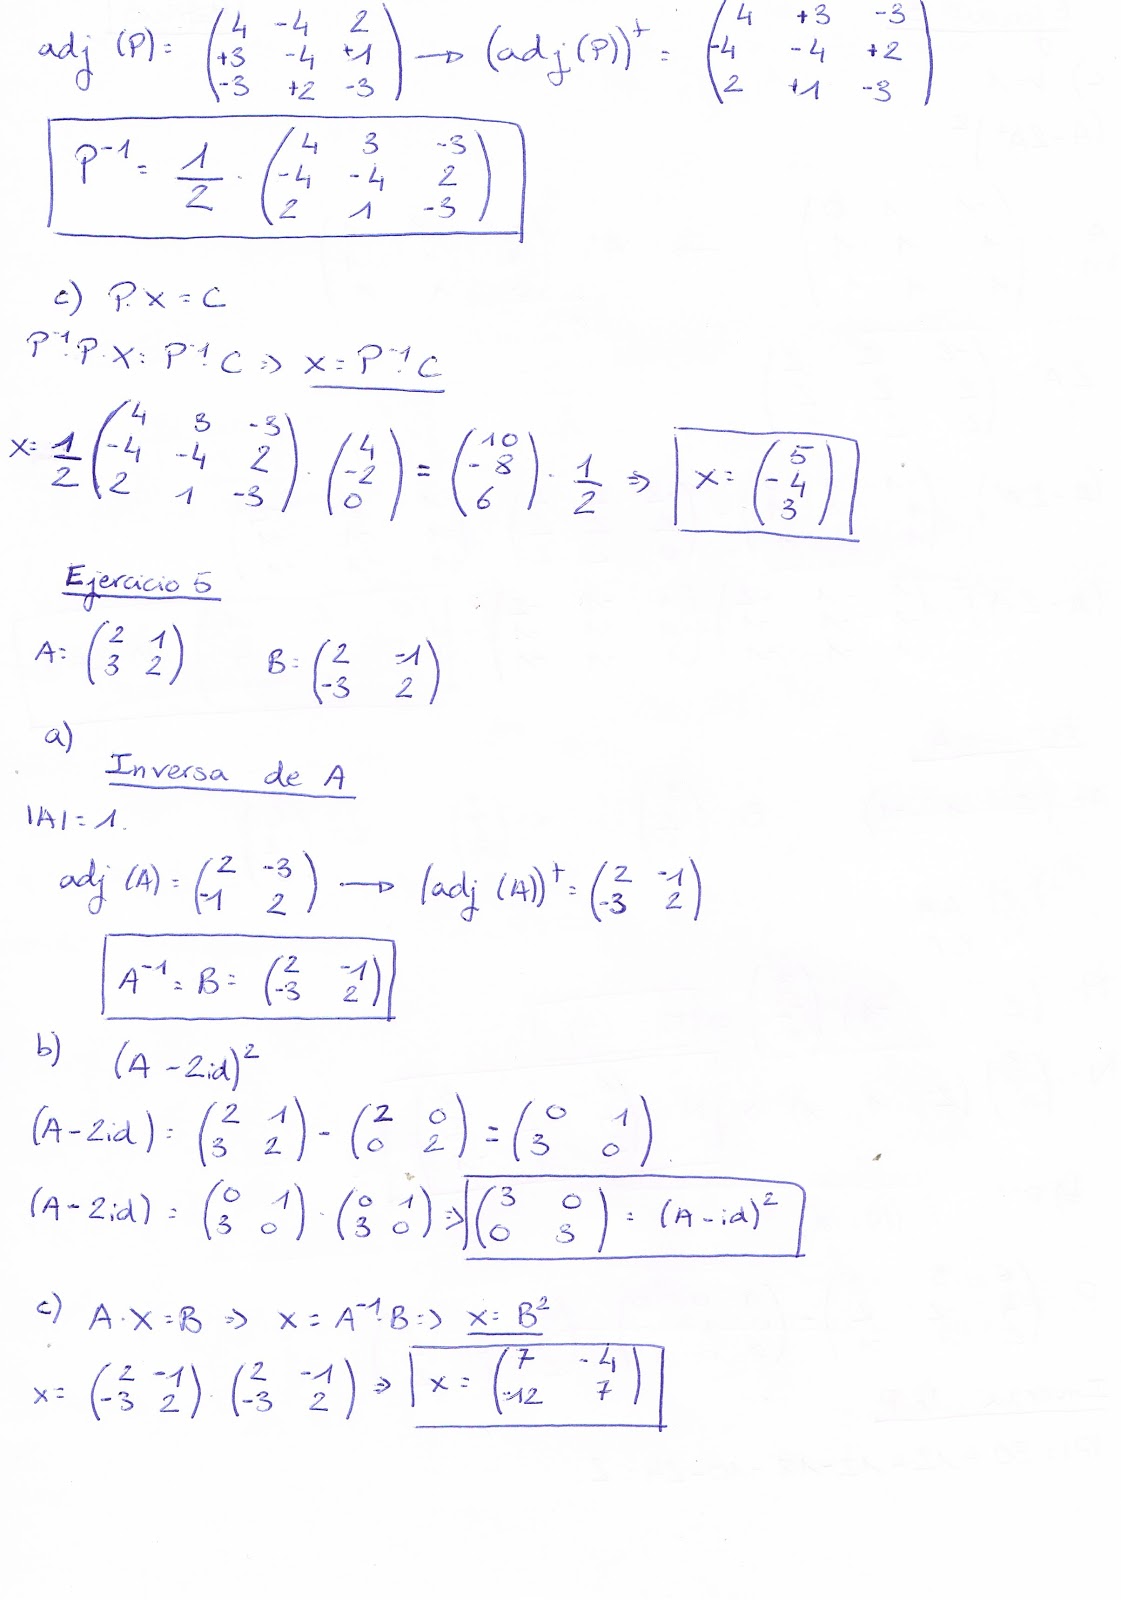 adj (P) = (4 -4 2 / +3 -4 +1 / -3 +2 -3) → (adj (P))^t = (4 +3 -3 / -4 -4 +2 / 2 +1 -3)
P^-1 = 1/2 · (4 3 -3 / -4 -4 2 / 2 1 -3)
c) P·X = C
P^-1·P·X = P^-1·C => X = P^-1·C
X = 1/2 (4 3 -3 / -4 -4 2 / 2 1 -3) · (4 / -2 / 0) = (10 / -8 / 6) · 1/2 => X = (5 / -4 / 3)
Ejercicio 5
A = (2 1 / 3 2) B = (2 -1 / -3 2)
a)
Inversa de A
|A| = 1.
adj (A) = (2 -3 / -1 2) → (adj (A))^t = (2 -1 / -3 2)
A^-1 = B = (2 -1 / -3 2)
b) (A - 2id)^2
(A - 2id) = (2 1 / 3 2) - (2 0 / 0 2) = (0 1 / 3 0)
(A - 2id) = (0 1 / 3 0) · (0 1 / 3 0) => (3 0 / 0 3) = (A - id)^2
c) A·X = B => X = A^-1·B => X = B^2
X = (2 -1 / -3 2) · (2 -1 / -3 2) => X = (7 -4 / -12 7)